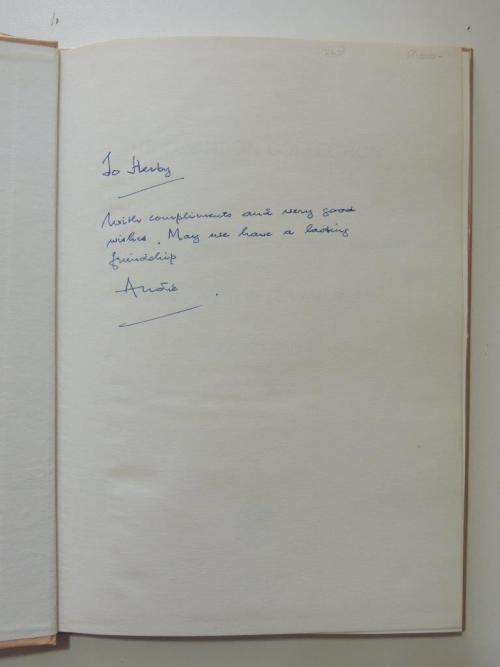 To Herby
With compliments and very good
wishes. May we have a lasting
friendship